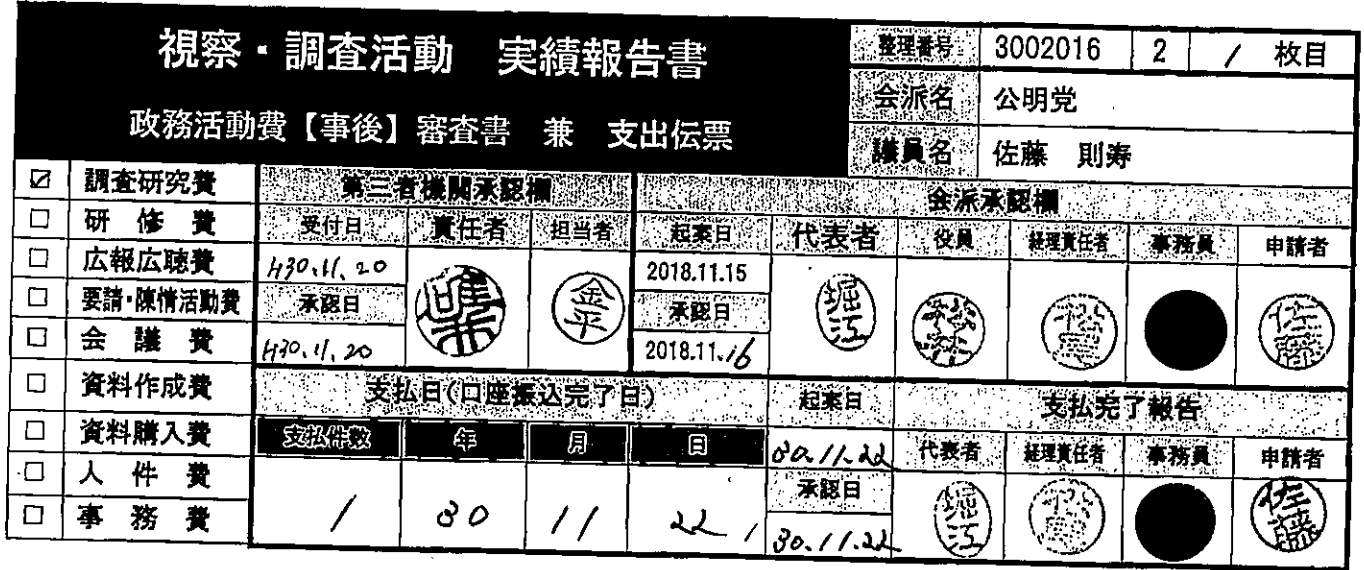 視察・調査活動 実績報告書
政務活動費【事後】審査書 兼 支出伝票
整理番号 3002016 2 / 枚目
会派名 公明党
議員名 佐藤 則寿
☑ 調査研究費
□ 研修費
□ 広報広聴費
□ 要請・陳情活動費
□ 会議費
□ 資料作成費
□ 資料購入費
□ 人件費
□ 事務費
第三者機関承認欄
受付日 責任者 担当者
H30.11.20
承認日
H30.11.20
金平
会派承認欄
起案日 代表者 役員 経理責任者 事務員 申請者
2018.11.15
承認日
2018.11.16
堀江
佐藤
支払日(口座振込完了日)
支払件数 年 月 日
1 30 11 22
起案日
30.11.22
承認日
30.11.22
支払完了報告
代表者 経理責任者 事務員 申請者
堀江
佐藤